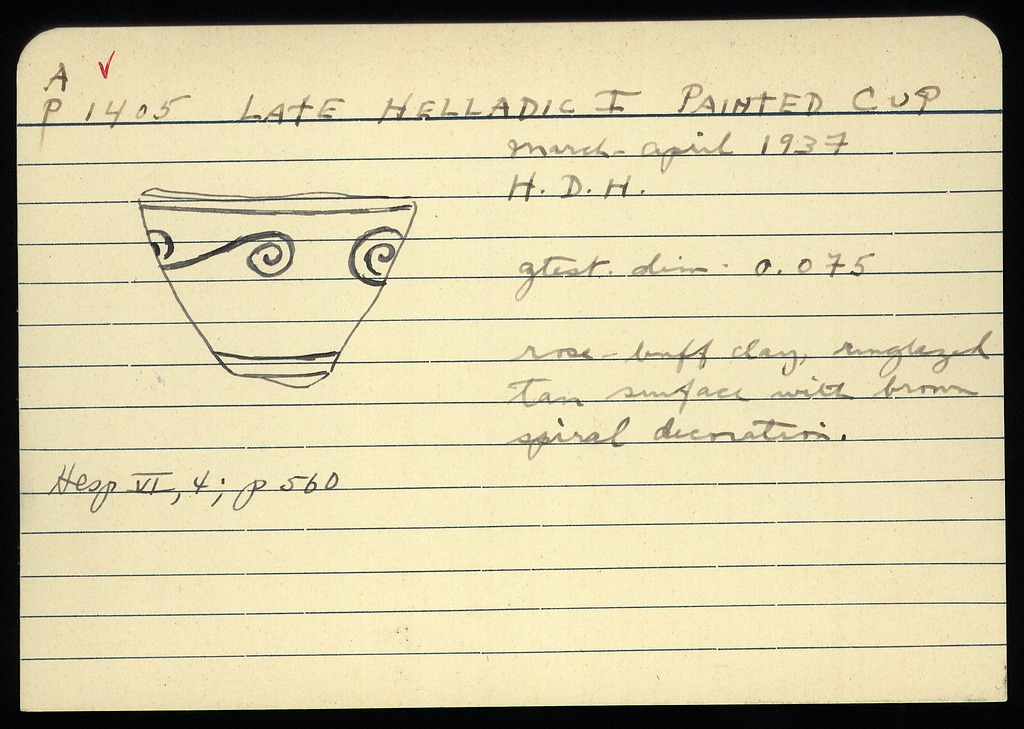 A ✓
P 1405 LATE HELLADIC I PAINTED CUP
March-April 1937
H. D. H.
gtest. dim. 0.075
rose-buff clay, unglazed
tan surface with brown
spiral decoration.
Hesp VI, 4; p 560